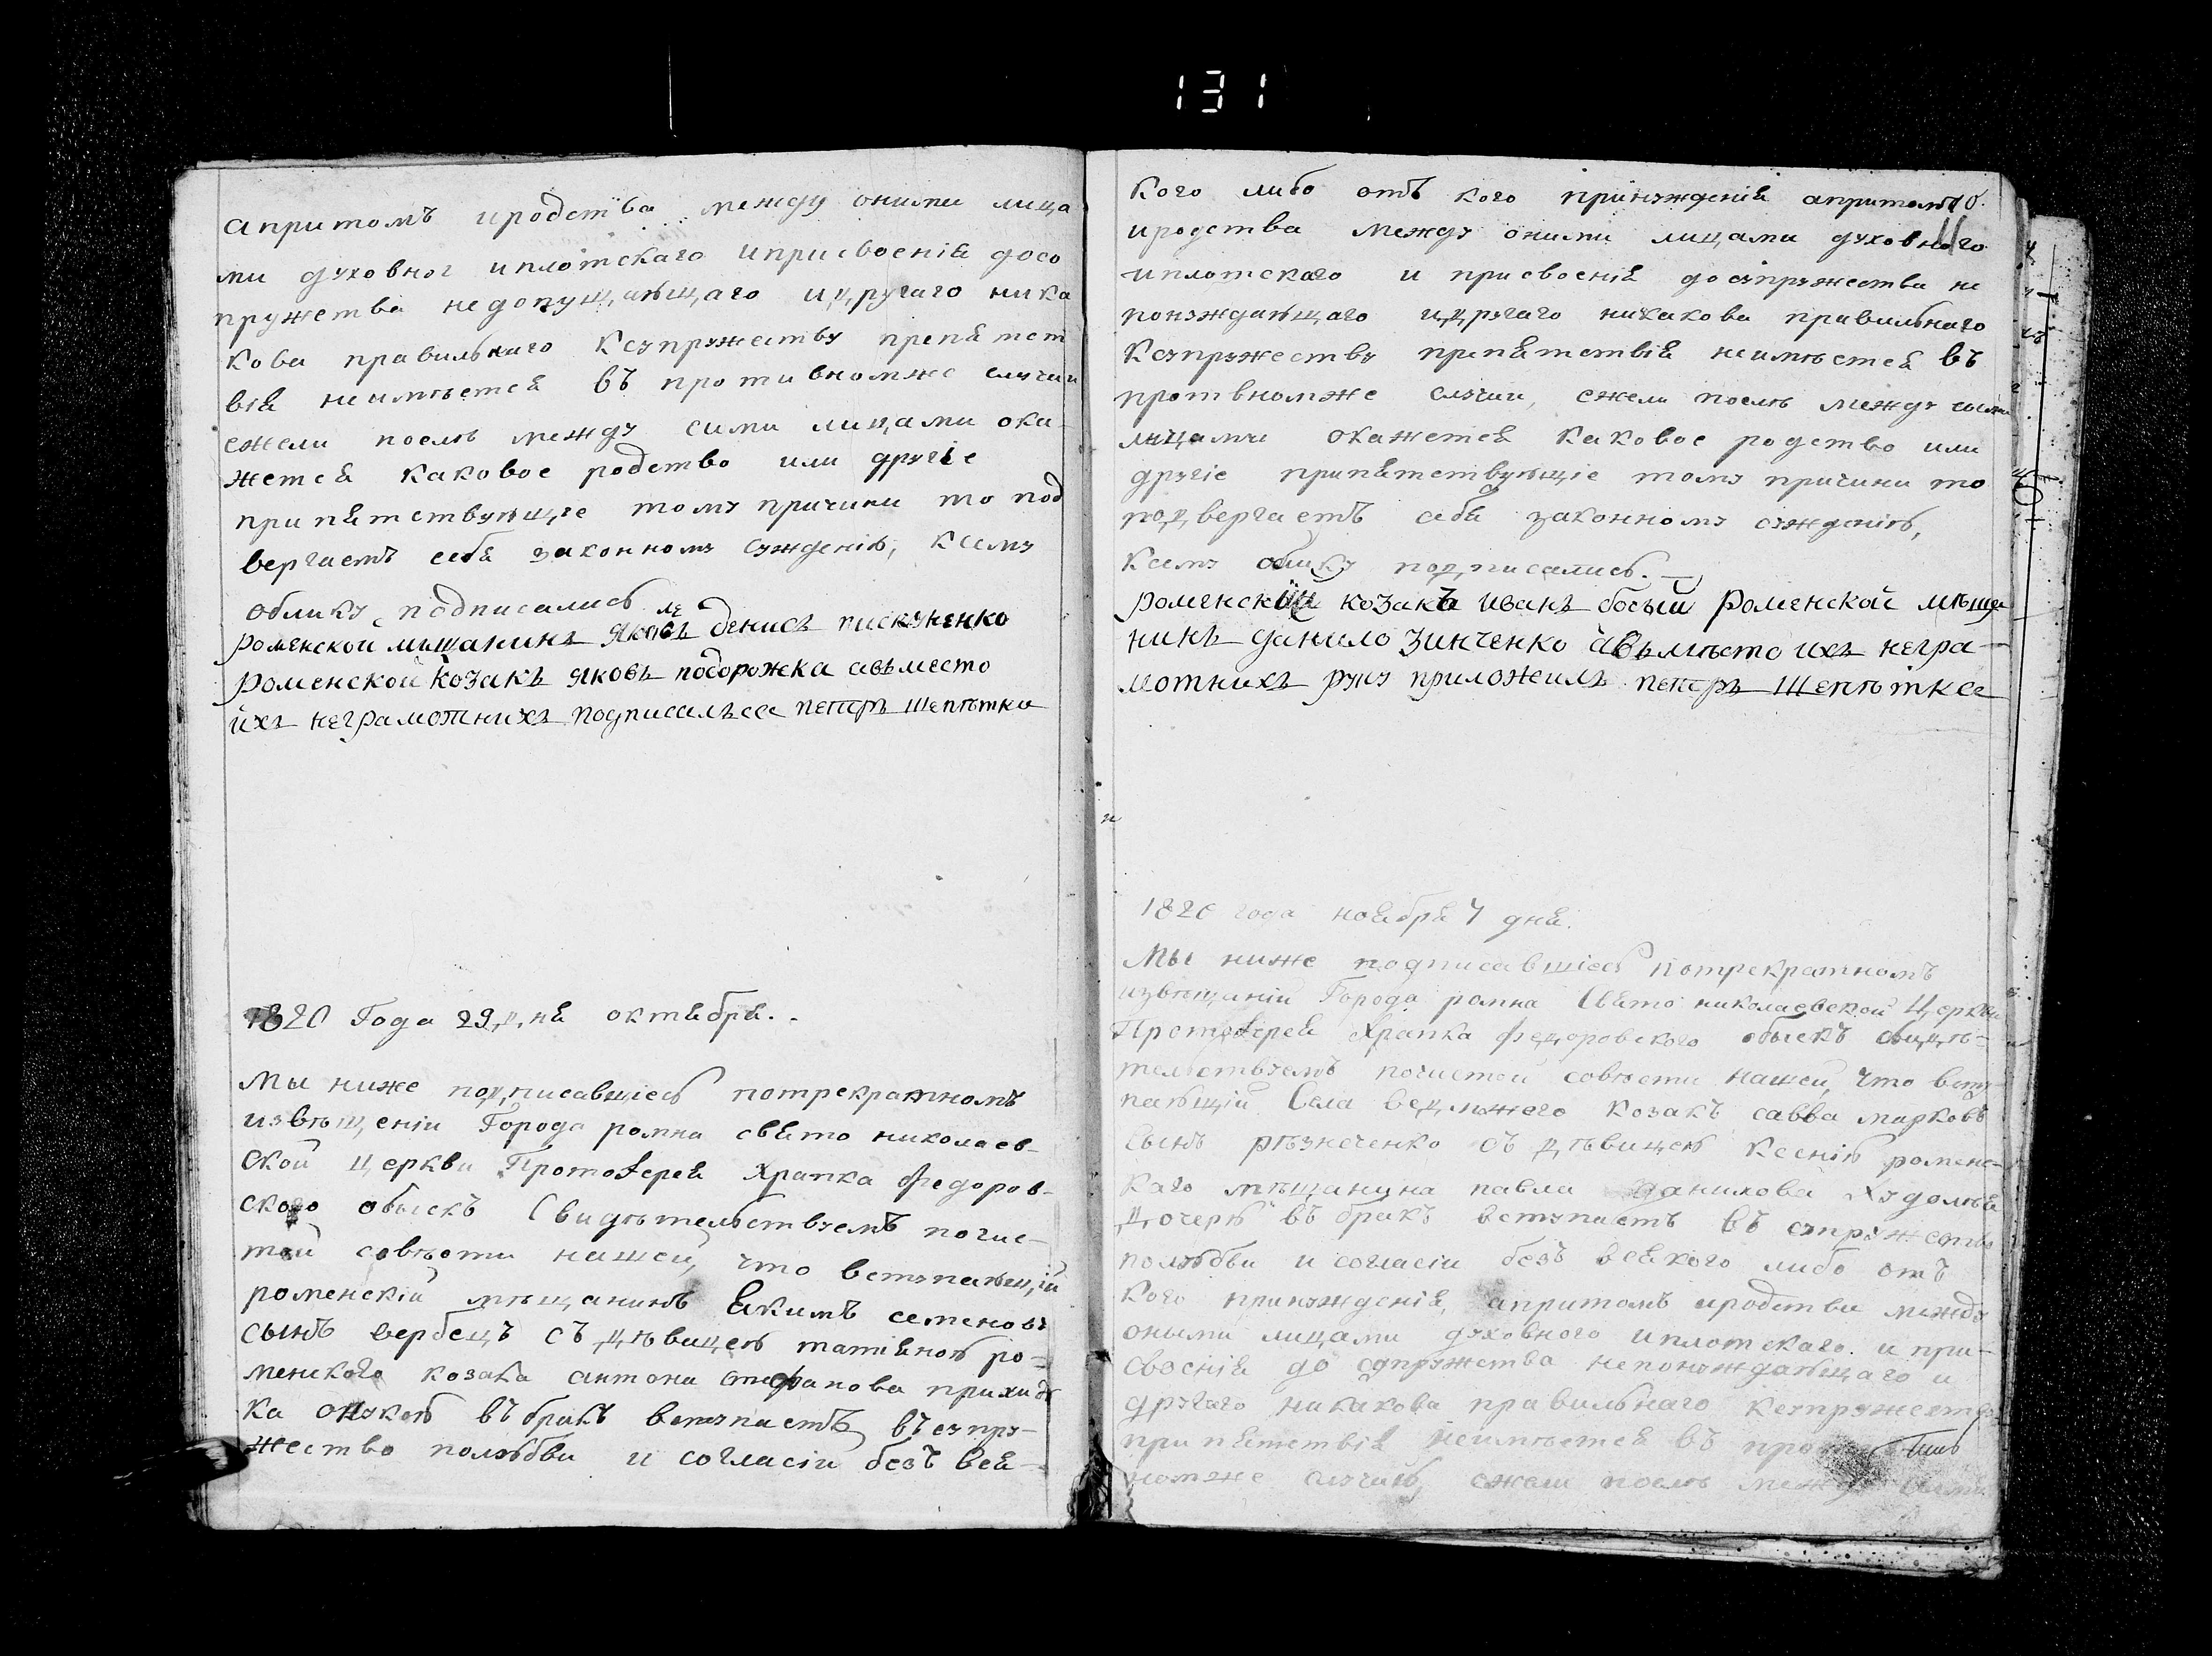 131
апритомъ иродства между оними лица
ми духовног иплотскаго иприсвоенія досо
пружства недопущающаго идругаго ника
кова правильнаго ксупружеству препятст
вія неимѣется въ противномже случаи
ежели послѣ между сими лицами ока
жется каковое родство или другіе
припятствующіе тому причини то под
вергаетъ себя законному сужденію, ксему
облику подписались
роменской мищанинъ яковъ денисъ пискуненко
роменской козакъ яковъ подорожка авъместо
ихъ неграмотнихъ подписалъся петръ шепѣтка
1820 Года 29 дня октября.
Мы ниже подписавшіесь потрекратномъ
извѣщеніи Города ромна свято николаев-
ской церкви Протоіерея Храпка Федоров-
ского обыскъ Свидѣтельствуемъ почис-
той совѣсти нашей, что вступающій
роменскій мѣщанинъ Екимъ семеновъ
сынъ вербецъ съ дѣвицею татіяною ро=
менского козака антона стефанова приходь
ка онукою въ бракъ вступаетъ въ супру-
жество полюбви и согласіи безъ вся-
кого либо отъ кого принужденія апритомъ
10.
11
иродства между оними лицами духовного
иплотскаго и присвоенія досупружества не
понуждающаго идругаго никакова правильнаго
ксупружеству препятствія неимѣется въ
протвномже случаи, ежели послѣ между сыми
лицами окажется каковое родство или
другіе припятствующіе тому причини то
подвергаетъ себя законному сужденію,
ксему облику подписались.
роменский козакъ иванъ босый роменской мѣща
нинъ данило зинченко авъмѣсто ихъ негра-
мотнихъ руку приложилъ петръ шепѣтка
1820 года ноября 4 дня.
Мы ниже подписавшіесь потрекратномъ
извѣщеніи Города ромна Свято николаевской Церкви
Протоіерея Храпка федоровского обыскъ свидѣ=
тельствуемъ почистой совѣсти нашей, что всту
пающій Села ведмежего козакъ савва марковъ
сынъ рѣзнеченко съ дѣвицею Ксенію роменс-
каго мѣщанина павла данилова Худолѣя
дочерю въ бракъ вступаетъ въ супружество
полюбви и согласіи безъ всякого либо отъ
кого принужденія, апритомъ иродства между
оными лицами духовного иплотскаго и при-
своенія до супружства непонуждающаго и
другаго никакова правильнаго ксупружеству
припятствія неимѣется въ про
номже случаю, ежели послѣ между сими